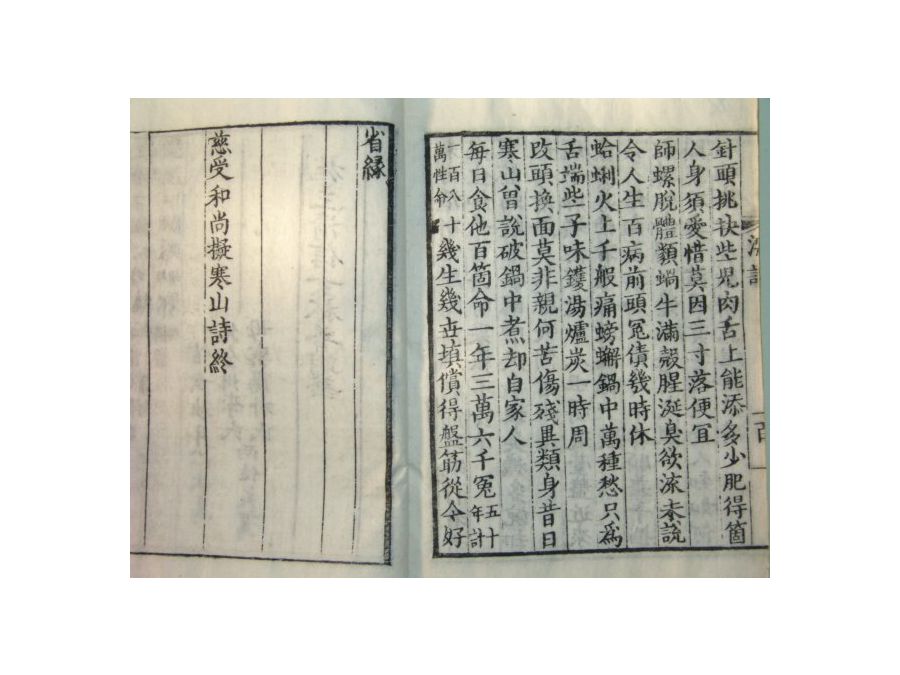 針頭挑抉些児肉舌上能添多少肥得箇
人身須愛惜莫因三寸落便冝
師螺脫體顙蝸牛滿殼腥涎臭欲流未說
令人生百病前頭冤債幾時休
蛤蜊火上千般痛螃蠏鍋中萬種愁只為
舌端些子味鑊湯爐炭一時周
改頭換面莫非親何苦傷殘異類身昔日
寒山曾說破鍋中煮却自家人
每日食他百箇命一年三萬六千冤五十年計
一百八十萬性命幾生幾世填償得盤筋從今好
省縁
慈受和尚擬寒山詩終